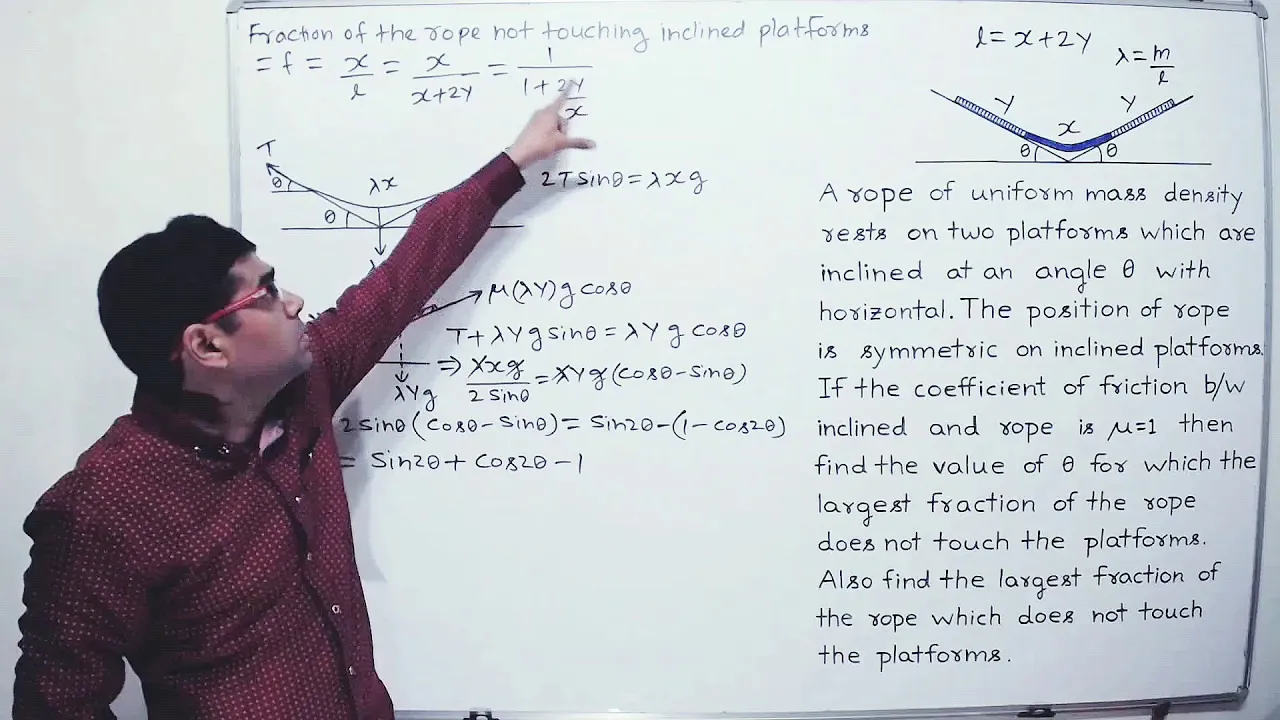 Fraction of the rope not touching inclined platforms
= f = x/l = x/(x+2y) = 1/(1+2y/x)
T
θ
λx
θ
2Tsinθ = λxg
μ(λy)g cosθ
T + λyg sinθ = λy g cosθ
λyg
⇒ λxg/2sinθ = λyg (cosθ - sinθ)
2sinθ (cosθ - sinθ) = sin2θ - (1 - cos2θ)
= sin2θ + cos2θ - 1
l = x+2y
λ = m/l
y
x
y
θ
θ
A rope of uniform mass density
rests on two platforms which are
inclined at an angle θ with
horizontal. The position of rope
is symmetric on inclined platforms.
If the coefficient of friction b/w
inclined and rope is μ=1 then
find the value of θ for which the
largest fraction of the rope
does not touch the platforms.
Also find the largest fraction of
the rope which does not touch
the platforms.